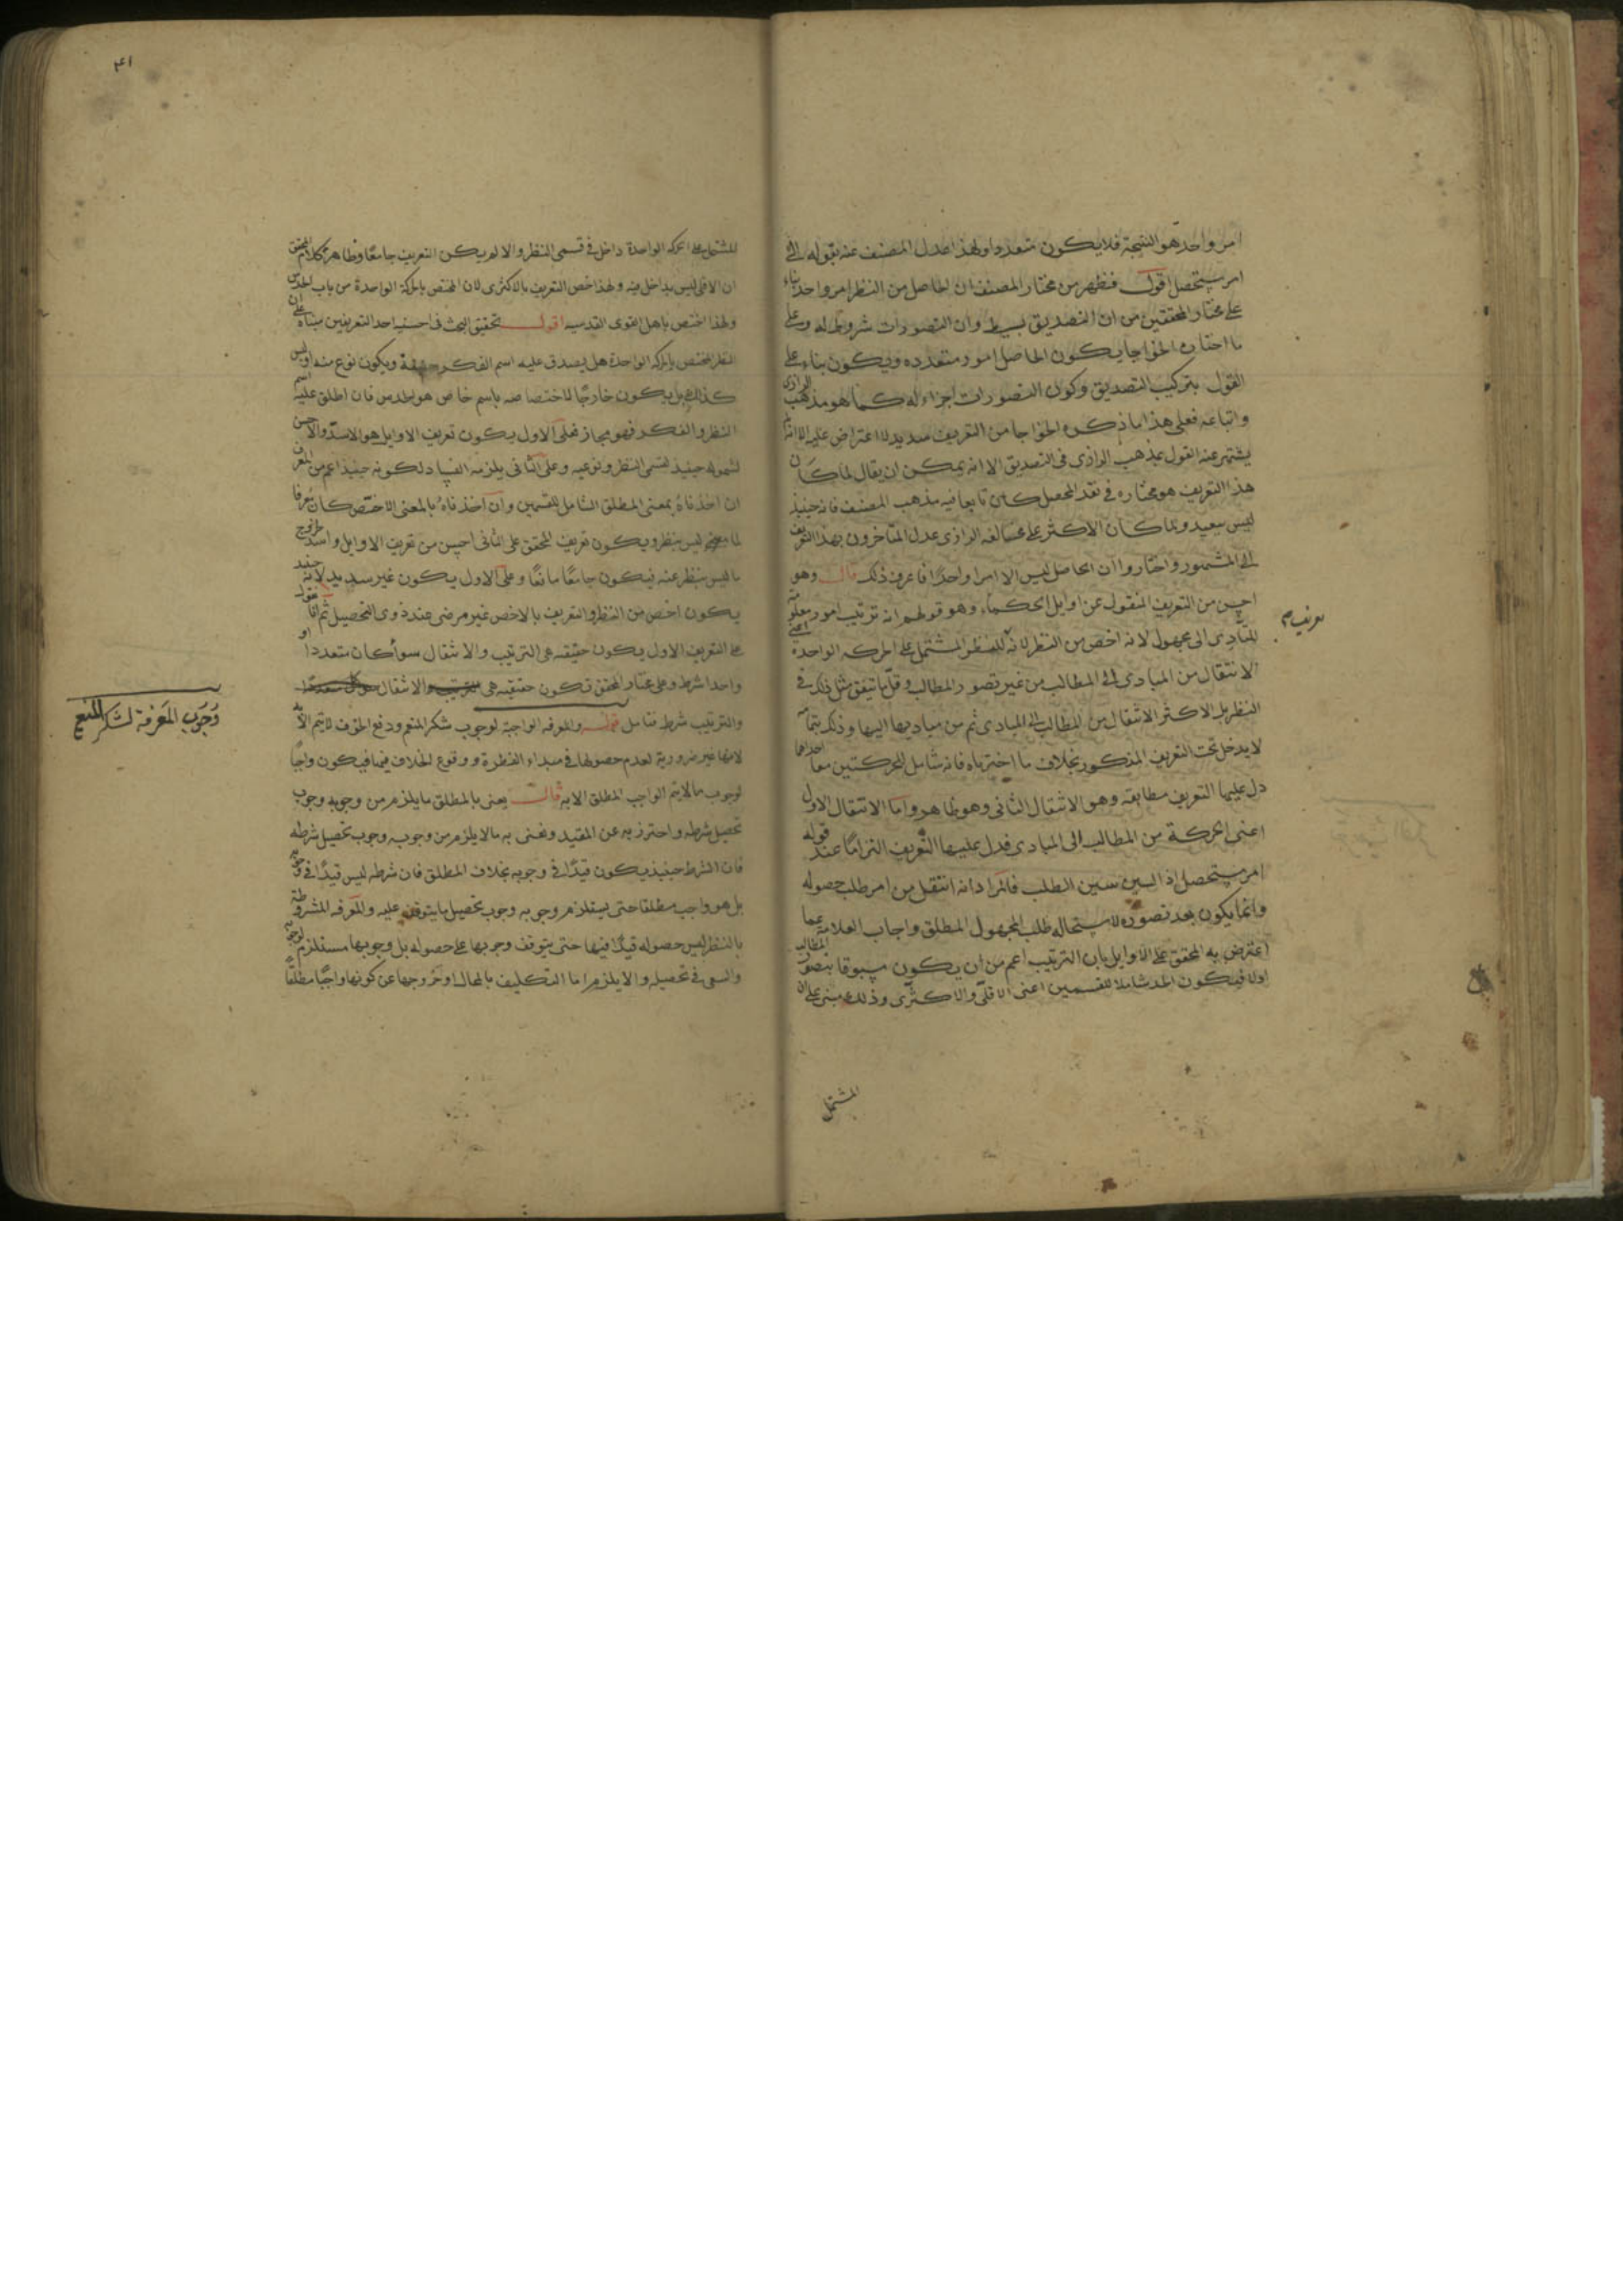 امر واحد هو النتيجة فلا يكون متعددا ولهذا عدل المصنف عنه بقوله الى
امر مستحصل اقول فظهر من مختار المصنف ان الحاصل من النظر امر واحد بناء
على مختار المحققين من ان التصديق بسيط وان التصورات شروط له وعلى
ما اختاره الخواجا يكون الحاصل امور متعدده ويكون بناء على
القول بتركيب التصديق وكون التصورات اجزاء له كما هو مذهب الرازى
واتباعه فعلى هذا ما ذكره الخواجا من التعريف سديد لا اعتراض عليه الا انه لم
يشتهر عنه القول بمذهب الرازى فى التصديق الا انه يمكن ان يقال لما كان
هذا التعريف هو مختاره فى نقد المحصل كان تابعا فيه مذهب المصنف فانه حينئذ
ليس ببعيد ولما كان الاكثر على مخالفه الرازى عدل المتاخرون بهذا التعريف
الى المشهور واختاروا ان الحاصل ليس الا امرا واحدا فاعرف ذلك قال وهو
احسن من التعريف المنقول عن اوايل الحكماء وهو قولهم انه ترتيب امور معلومة
للتادى الى مجهول لانه اخص من النظر لانه للنظر المشتمل على الحركه الواحدة اعنى
الانتقال من المبادى الى المطالب من غير تصور المطالب وقلما يتفق مثل ذلك فى
النظر بل الاكثر الانتقال من المطالب الى المبادى ثم من مباديها اليها وذلك
لا يدخل تحت التعريف المذكور بخلاف ما اخترناه فانه شامل للحركتين معا احداهما
دل عليها التعريف مطابقه وهو الانتقال الثانى وهو ظاهر واما الانتقال الاول
اعنى الحركة من المطالب الى المبادى فدل عليها التعريف التزاما عند قوله
امر مستحصل اذ السين سين الطلب فالمراد انه انتقل من امر طلب حصوله
وانما يكون بعد تصوره لاستحاله طلب المجهول المطلق واجاب العلامة عما
اعترض به المحقق على الاوايل بان الترتيب اعم من ان يكون مسبوقا بتصور المطالب
اولا فيكون الحد شاملا للقسمين اعنى الاقلى والاكثرى وذلك مبنى على ان
المشتمل
تعريف
٤١
المشتمل على الحركه الواحدة داخل فى قسمى النظر والا لم يكن التعريف جامعا وظاهر كلام المحقق
ان الاقلى ليس بداخل فيه ولهذا خص التعريف بالاكثرى لان المختص بالحركة الواحدة من باب الحدس
ولهذا اختص باهل القوى القدسيه اقول تحقيق البحث فى احسنيه احد التعريفين مبناه على ان
النظر المختص بالحركه الواحدة هل يصدق عليه اسم الفكر حقيقة ويكون نوع منه او ليس
كذلك بل يكون خارجا لاختصاصه باسم خاص هو الحدس فان اطلق عليه اسم
النظر والفكر فهو مجاز فعلى الاول يكون تعريف الاوايل هو الاسد والاحسن
لشموله حينئذ لقسمى النظر ونوعيه وعلى الثانى يلزمه الفساد لكونه حينئذ اعم من المعرف
ان اخذناه بمعنى المطلق الشامل للقسمين وان اخذناه بالمعنى الاخص كان معرفا
لما ليس بنظر ويكون تعريف المحقق على الثانى احسن من تعريف الاوايل واسد لخروج
ما ليس بنظر عنه فيكون جامعا مانعا وعلى الاول يكون غير سديد لانه حينئذ
يكون اخص من النظر والتعريف بالاخص غير مرضى عند ذوى التحصيل ثم انا نقول
على التعريف الاول يكون حقيقته هى الترتيب والانتقال سواء كان متعددا او
واحدا شرط وعلى مختار المحقق تكون حقيقيه هى الانتقال
والترتيب شرط فتامل قوله والمعرفه الواجبة لوجوب شكر المنعم ودفع الخوف لا يتم الا به
لانها غير ضرورية لعدم حصولها فى مبداء الفطرة ووقوع الخلاف فيها فيكون واجبا
لوجوب ما لا يتم الواجب المطلق الا به قال يعنى بالمطلق ما يلزم من وجوبه وجوب
تحصيل شرطه واحترز به عن المقيد ونعنى به ما لا يلزم من وجوبه وجوب تحصيل شرطه
فان الشرط حينئذ يكون قيدا فى وجوبه بخلاف المطلق فان شرطه ليس قيدا فى وجوبه
بل هو واجب مطلقا حتى يستلزم وجوبه وجوب تحصيل ما يتوقف عليه والمعرفه المشروطة
بالنظر ليس حصوله قيدا فيها حتى يتوقف وجوبها على حصوله بل وجوبها مستلزم لوجوبه
والسعى فى تحصيله والا يلزم اما التكليف بالمحال او خروجها عن كونها واجبا مطلقا
وجوب المعرفة لشكر المنعم